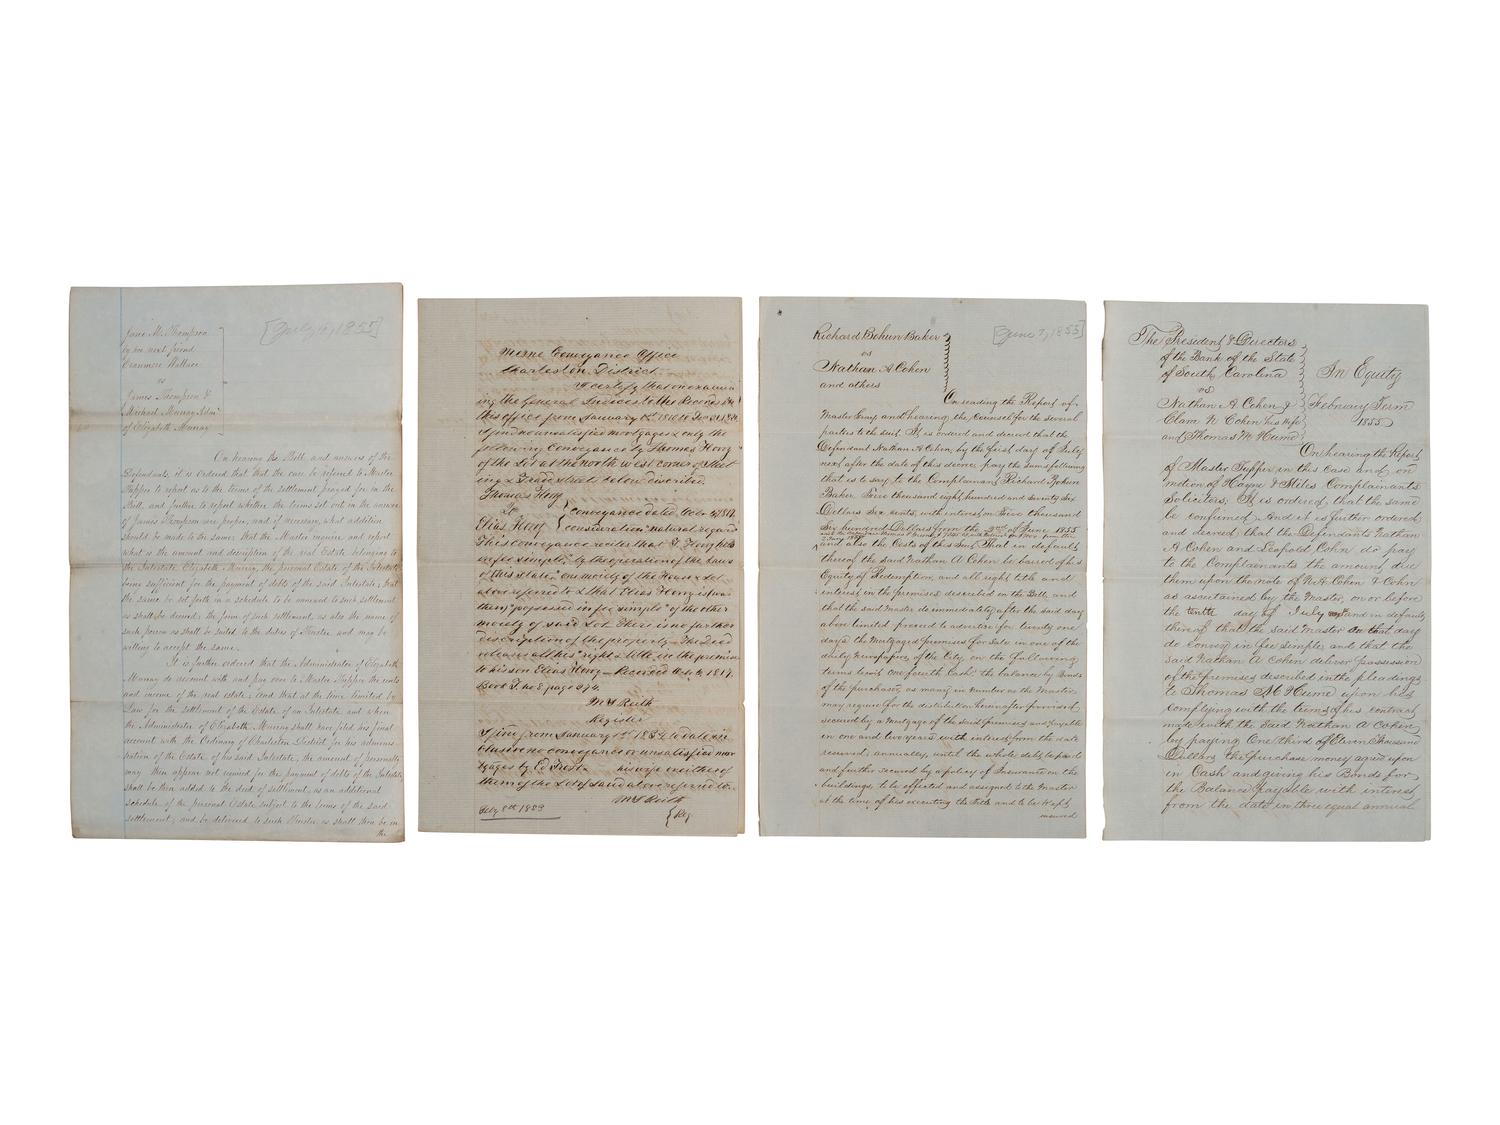 Jane M. Thompson
by her next friend
Cranmore Wallace
vs
James Thompson &
Michael Murray Admr
of Elizabeth Murray
[July 16, 1855]
On hearing the Bill and answers of the
Defendants, it is ordered that that the case be referred to Master
Tupper to report as to the terms of the settlement prayed for in the
Bill, and further to report whether the terms set out in the answer
of James Thompson are proper, and if necessary, what addition
should be made to the same; that the Master inquire and report
what is the amount and description of the real Estate belonging to
the Intestate Elizabeth Murray, the personal Estate of the Intestate
being sufficient for the payment of debts of the said Intestate; that
the same be set forth in a schedule to be annexed to such settlement
as shall be decreed; the form of such settlement, as also the name of
such person as shall be suited to the duties of Trustee and may be
willing to accept the same.
It is further ordered that the Administrator of Elizabeth
Murray do account with and pay over to Master Tupper the rents
and income of the real estate; and that at the time limited by
Law for the settlement of the Estate of an Intestate and when
the Administrator of Elizabeth Murray shall have filed his final
account with the Ordinary of Charleston District for his adminis-
tration of the Estate of his said Intestate, the amount of personalty
may then appear not required for the payment of debts of the Intestate
shall be then added to the deed of settlement, as an additional
schedule of the personal Estate subject to the terms of the said
settlement, and be delivered to such Trustee as shall then be in
the
Mesne Conveyance Office
Charleston District.
I certify that on examin
ing the General Indices to the Records in
this office from January 1st 1800 to
I find no unsatisfied mortgages & only the
following Conveyance by Thomas Horry
of the Lot at the north west corner of Meet
ing & Tradd streets below described.
Thomas Horry
to
Elias Horry
conveyance dated Octr 1817.
consideration "natural regard"
This conveyance recites that T. Horry held
in fee simple, "by the operation of the Laws
of this State," one moiety of the House & Lot
above referred to & that Elias Horry is further
"possessed in fee simple" of the other
moiety of said Lot. There is no further
discription of the property. The Deed
releases all his "right & title in the premises
to his son Elias Horry — Recorded Oct 1817.
Book T. no 8 page 394.
M H Reith
Register
I find from January 1st 1852 to date in
clusive no conveyance or unsatisfied mor
tgages by Ed Frost his wife or either of
them of the Lot of said above referred to.
M H Reith
Reg
Feby 8th 1853
Richard Bohun Baker
vs
Nathan A Cohen
and others
[June 7, 1855]
On reading the Report of
Master Gray and hearing the Counsel for the several
parties to the suit. It is ordered and decreed that the
Defendant Nathan A Cohen, by the first day of July
next after the date of this decree, pay the sums following
that is to say, to the Complainant Richard Bohun
Baker Five thousand eight hundred and seventy six
Dollars Six cents, with interest on Five thousand
Six hundred Dollars from the 2nd of June 1855
and also the Costs of this Suit. That in default
thereof the said Nathan A Cohen be barred of his
Equity of Redemption, and all right title and
interest, in the premises described in the Bill, and
that the said Master do immediately after the said day
above limited proceed to advertise for twenty one
days the Mortgaged Premises for Sale in one of the
daily Newspapers of the City, on the following
terms to wit, one fourth Cash; the balance by Bonds
of the purchaser, as many in number as the Master
may require for the distribution herein after provided
secured by a Mortgage of the said premises and payable
in one and two years with interest from the date
reserved annually, until the whole debt be paid
and further secured by a policy of Insurance on the
buildings to be effected and assigned to the Master
at the time of his executing the Title and to be kept
insured
The President & Directors
of the Bank of the State
of South Carolina
vs
Nathan A. Cohen &
Clara N Cohen his Wife
and Thomas M. Hume
In Equity
February Term
1855
On hearing the Report
of Master Tupper in this Case and on
motion of Hayne & Miles Complainants
Solicitors; It is ordered, that the same
be confirmed. And it is further ordered
and decreed, that the Defendants Nathan
A Cohen and Leopold Cohn do pay
to the Complainant the amount due
them upon the note of N. A. Cohen & Cohn
as ascertained by the Master, on or before
the tenth day of July and in default
thereof that the said Master on that day
do convey in fee simple, and that the
said Nathan A Cohen deliver possession
of the premises described in the pleadings
to Thomas M. Hume upon his
complying with the terms of his contract
made with the said Nathan A Cohen
by paying One third of Eleven Thousand
Dollars the purchase money agreed upon
in Cash and giving his Bonds for
the Balance payable with interest
from the date in three equal annual